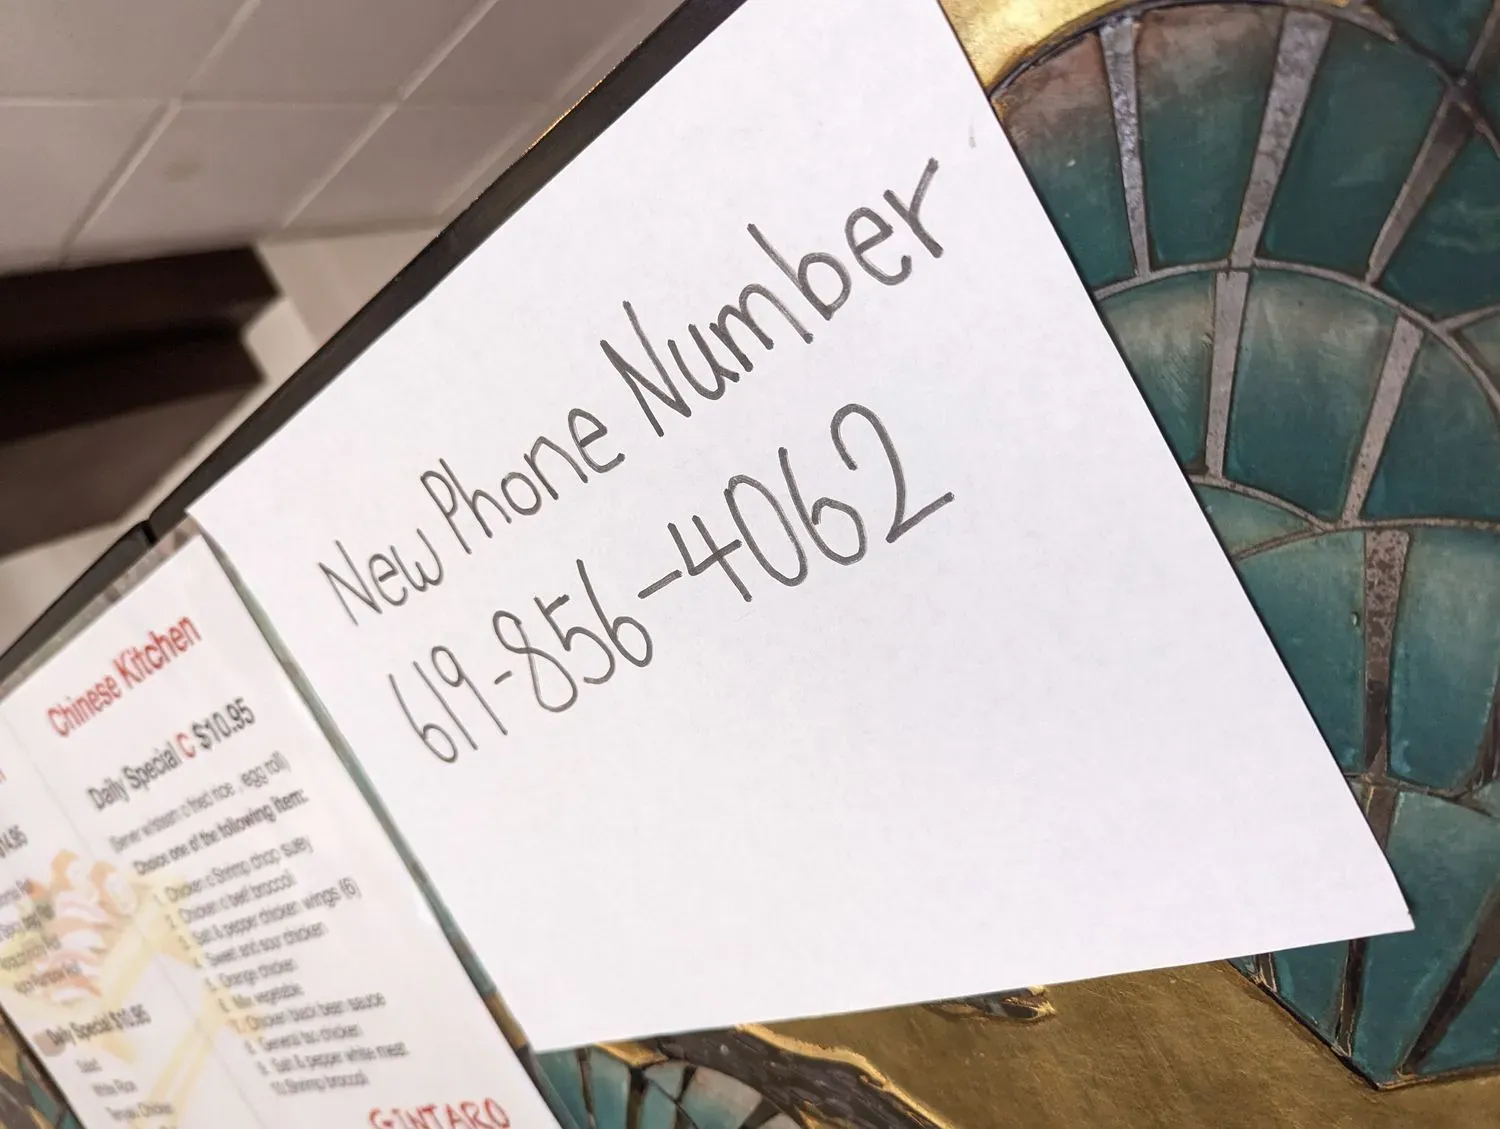 New Phone Number
619-856-4062
Chinese Kitchen
Daily Special C $10.95
(Server w/steam o fried rice , egg roll)
Choice one of the following item:
1. Chicken o Shrimp chop suey
2. Chicken o beef broccoli
3. Salt & pepper chicken wings (6)
4. Sweet and sour chicken
5. Orange chicken
6. Mix vegetable
7. Chicken black bean sauce
8. General tso chicken
9. Salt & pepper white meat
10. Shrimp broccoli
GINTARO
Daily Special $10.95
Salad
White Rice
Teriyaki Chicken